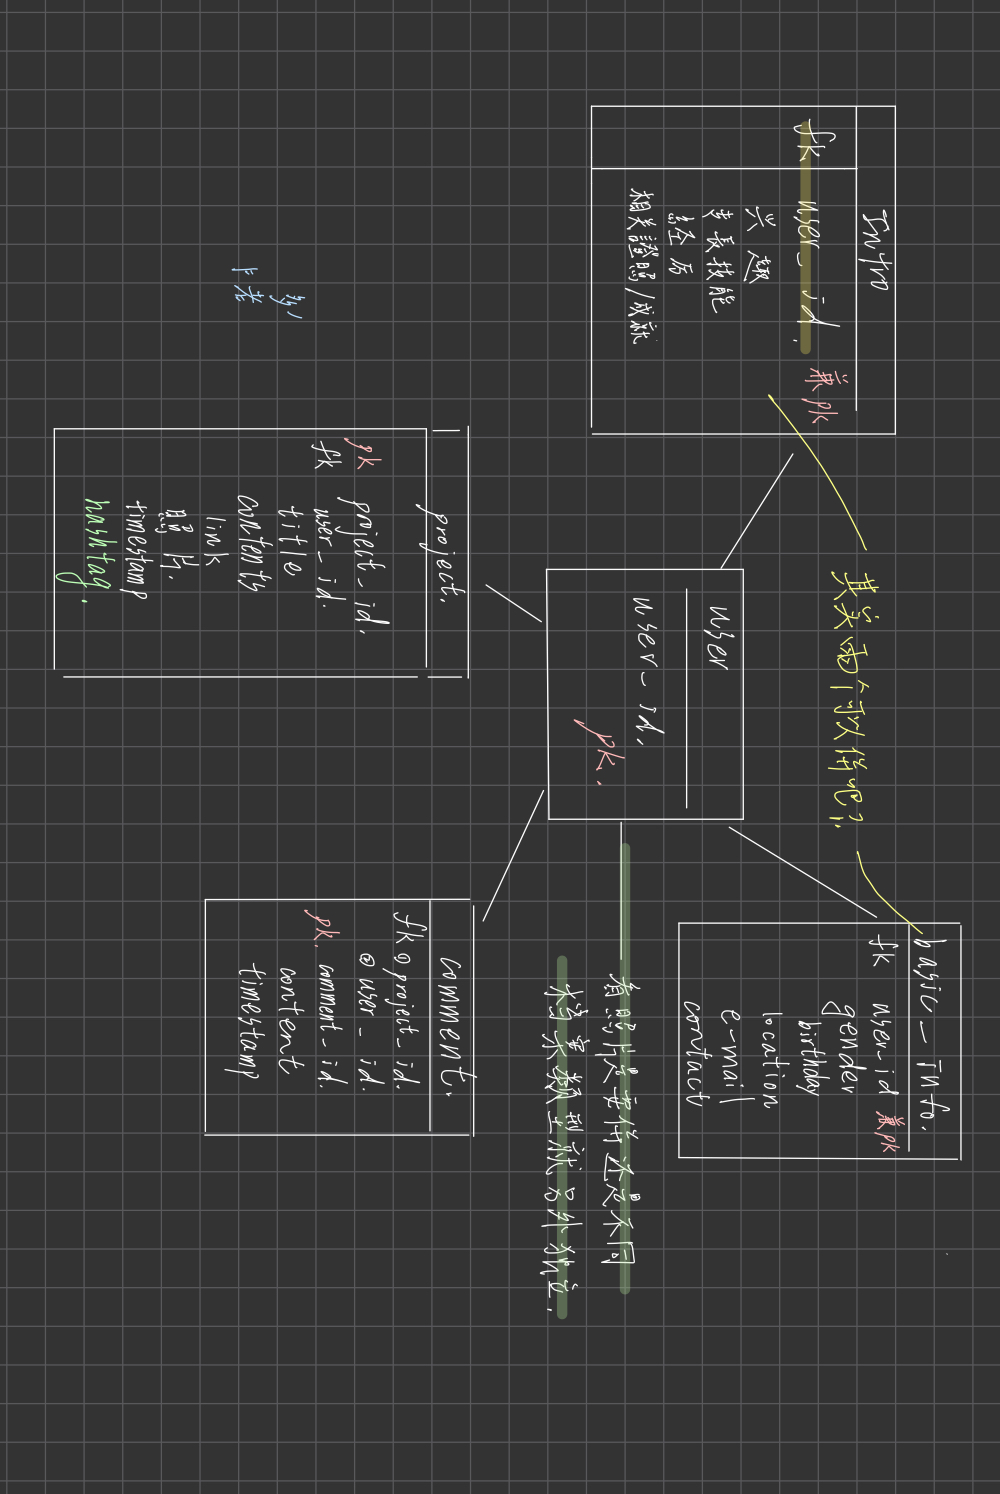 Intro
fk user_id. 兼pk
兴趣
专長技能
经历
相关證照/成就
其实兩个可以併吧?
basic_info.
fk user_id 兼pk
gender
birthday
location
e-mail
contact
user
user_id.
pk.
看照片是要併还是不同
档案類型就另外独立.
project.
pk project_id.
fk user_id.
title
contents
link
照片.
timestamp
hashtag.
comment.
fk ① project_id.
② user_id.
pk. comment_id.
content
timestamp